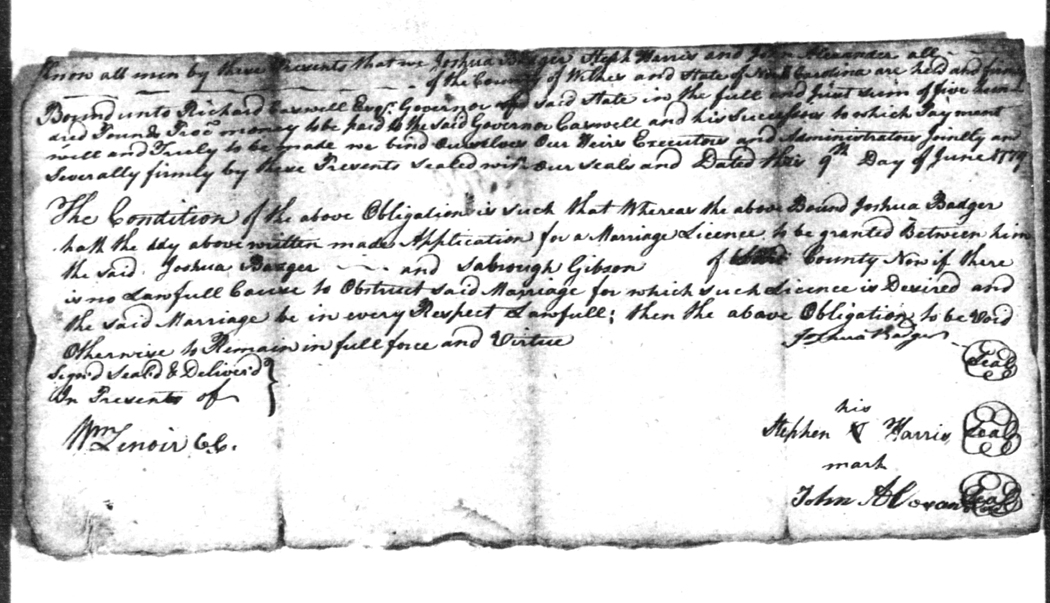 Know all men by these Presents that we Joshua Badger Steph Harris and John Alexander all
of the County of Wilkes and State of North Carolina are held and firmly
Bound unto Richard Caswell Esqr. Governor of said State in the full and just sum of five hun-
dred Pounds Proc money to be paid to the said Governor Caswell and his Successors to which Payment
well and Truly to be made we bind ourselves Our Heirs Executors and Administrators Jointly an
Severally firmly by these Presents Sealed with our Seals and Dated this 9th Day of June 1779
The Condition of the above Obligation is such that Whereas the above Bound Joshua Badger
hath the day above written made Application for a Marriage Licence to be granted Between him
the said Joshua Badger and Sabrough Gibson of Said County Now if there
is no Lawfull Cause to Obstruct said Marriage for which such Licence is Desired and
the said Marriage be in every Respect Lawfull; then the above Obligation to be Void
Otherwise to Remain in full force and Virtue
Joshua Badger Seal
Signd Seald & Deliverd
In Presents of
his
Stephen Harris Seal
mark
Wm Lenoir CC.
John Alexan Seal